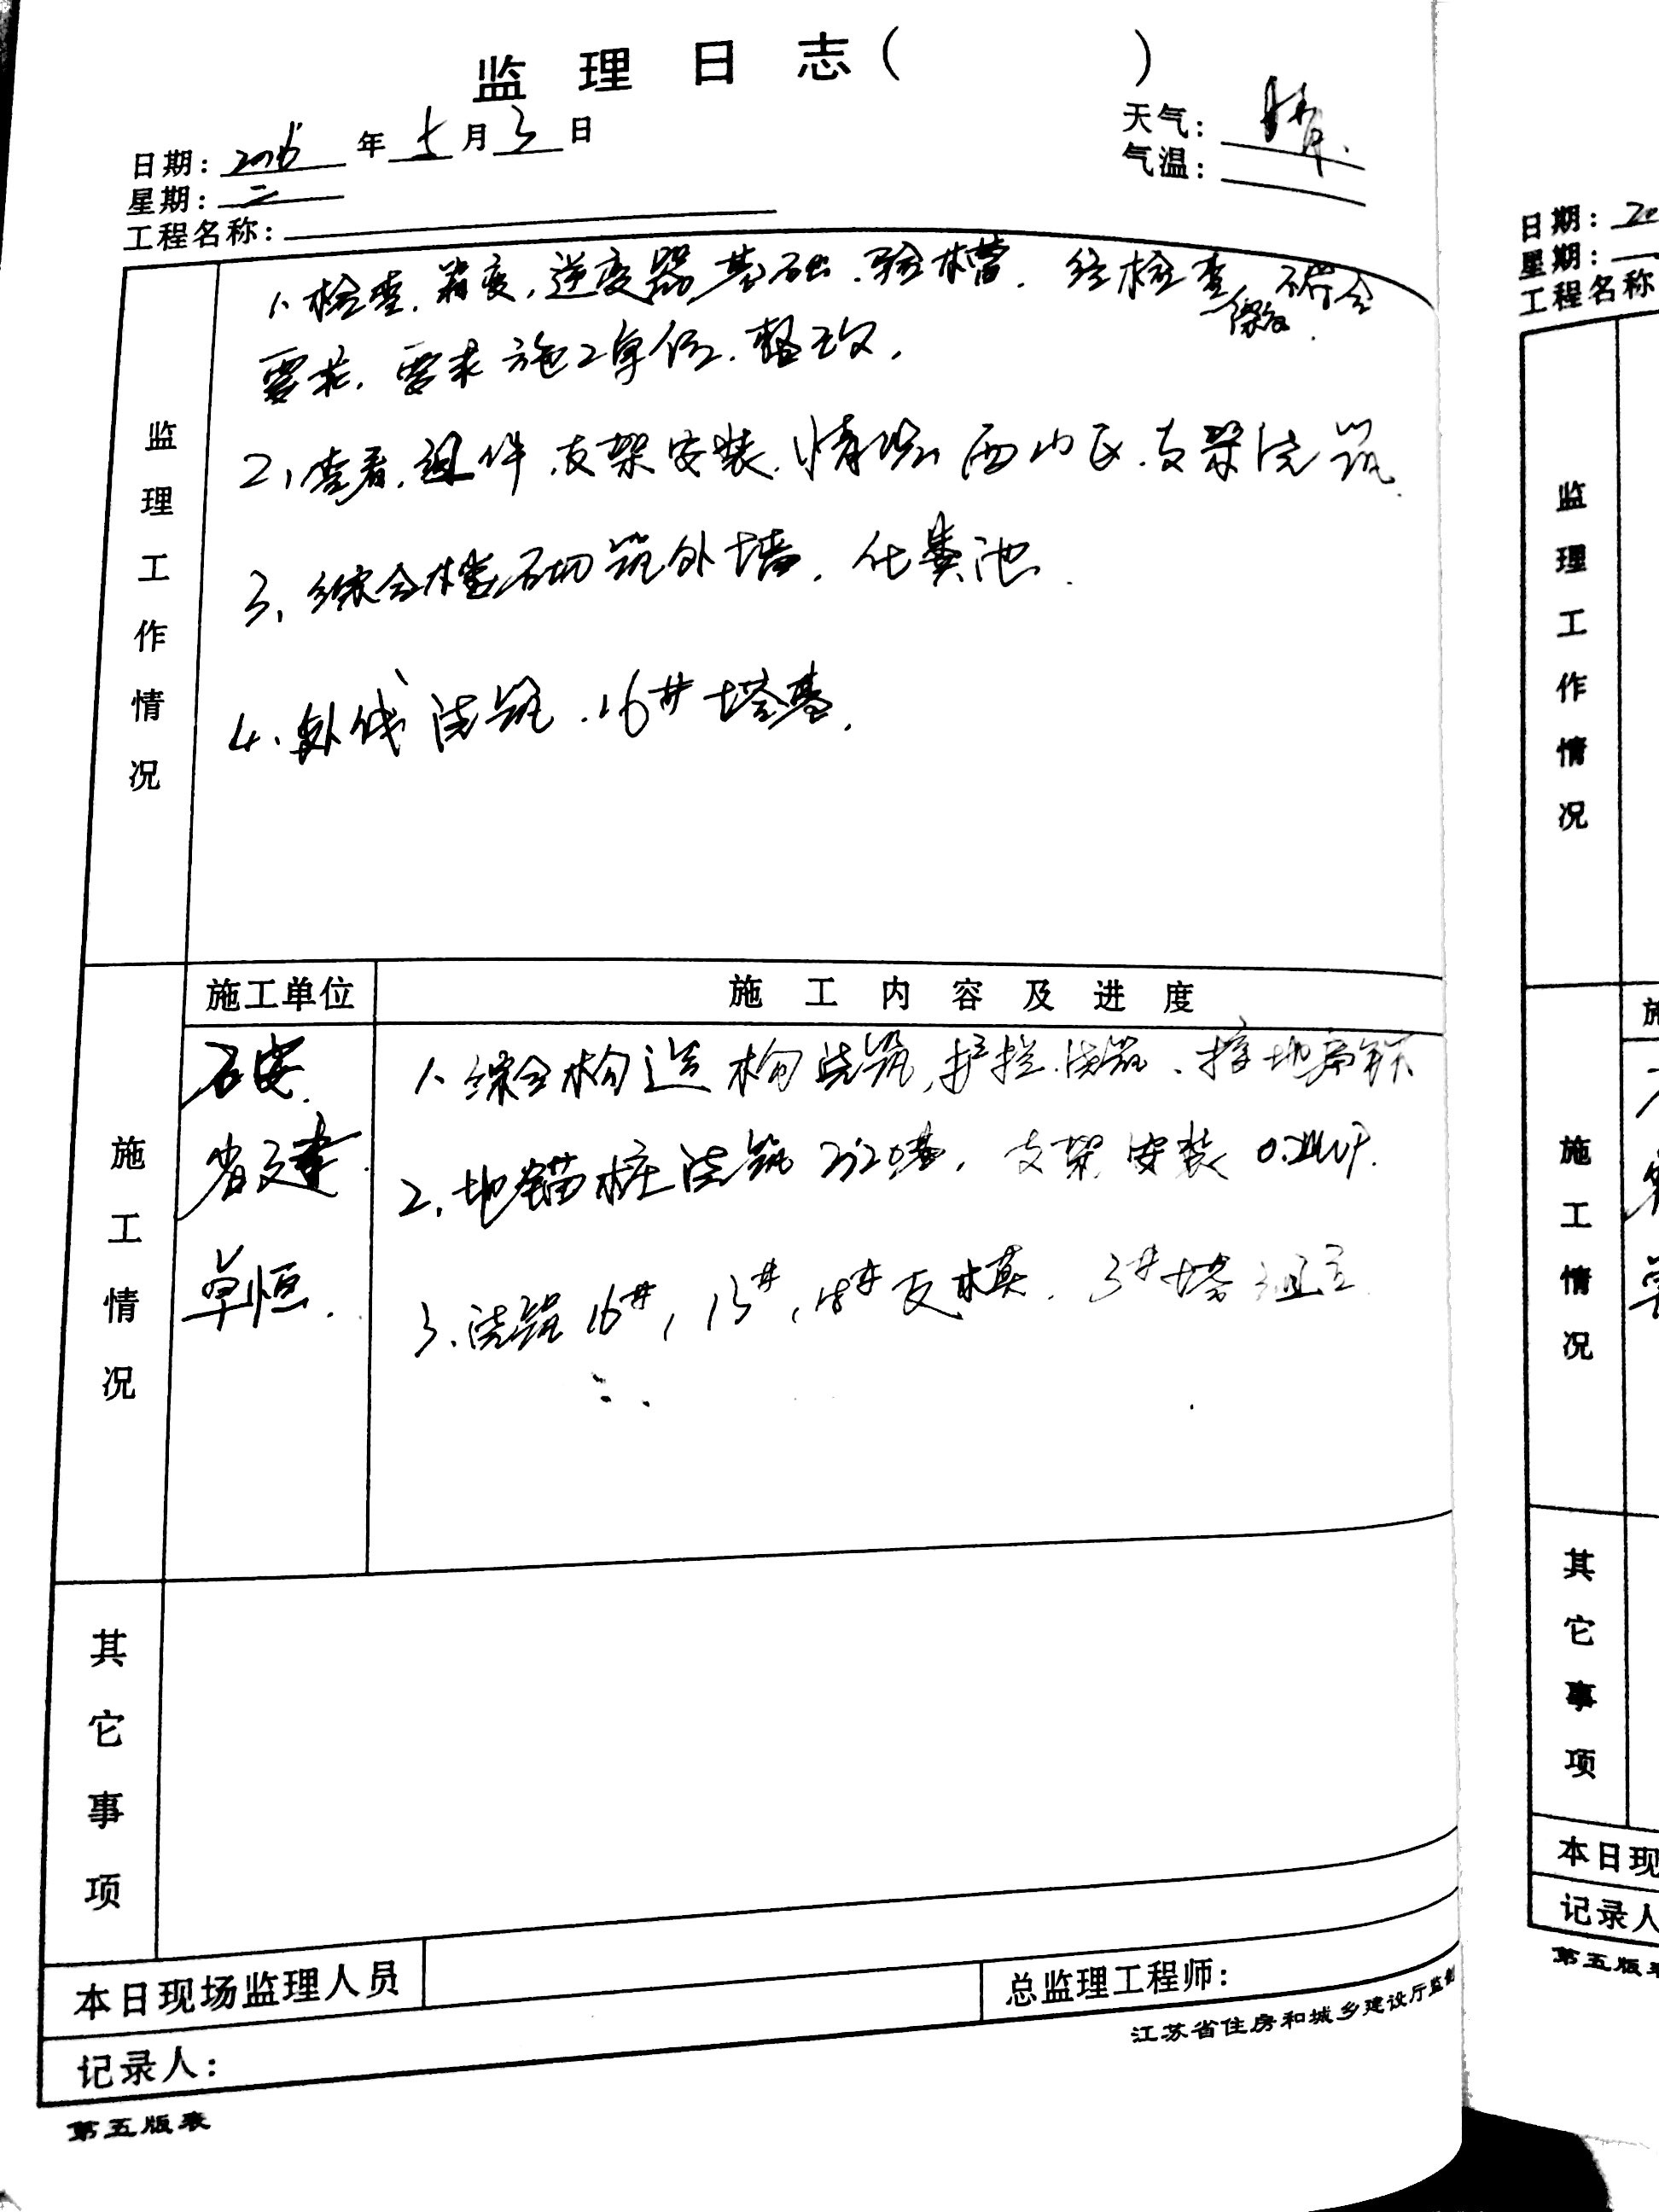 监理日志( )
日期: 2016 年 5 月 3 日
天气: 晴.
星期: 二
气温:
工程名称:
监理工作情况
1、检查.箱变,逆变器基础.验槽.经检查 不符合
要求.要求施工单位.整改.
2、查看.组件.支架安装.情况.西山区.支架浇筑.
3、综合楼砌筑外墙,化粪池.
4、外线浇筑.16#塔基.
施工情况
施工单位 施工内容及进度
石安. 1、综合楼构造柱浇筑,护栏.浇筑、接地扁铁
省建. 2、地锚桩浇筑 基,支架安装
卓恒. 3、浇筑16#,15#,18#支模.3#塔组立
其它事项
本日现场监理人员
总监理工程师:
记录人:
江苏省住房和城乡建设厅监制
第五版表
日期: 20
星期:
工程名称
监理工作情况
施
施工情况
其它事项
本日现
记录人
第五版表